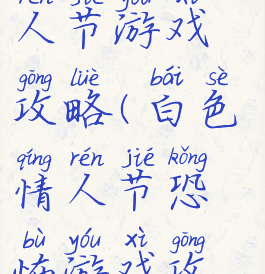 rén jié yóu xì
人节游戏
gōng lüè bái sè
攻略(白色
qíng rén jié kǒng
情人节恐
bù yóu xì gōng
怖游戏攻